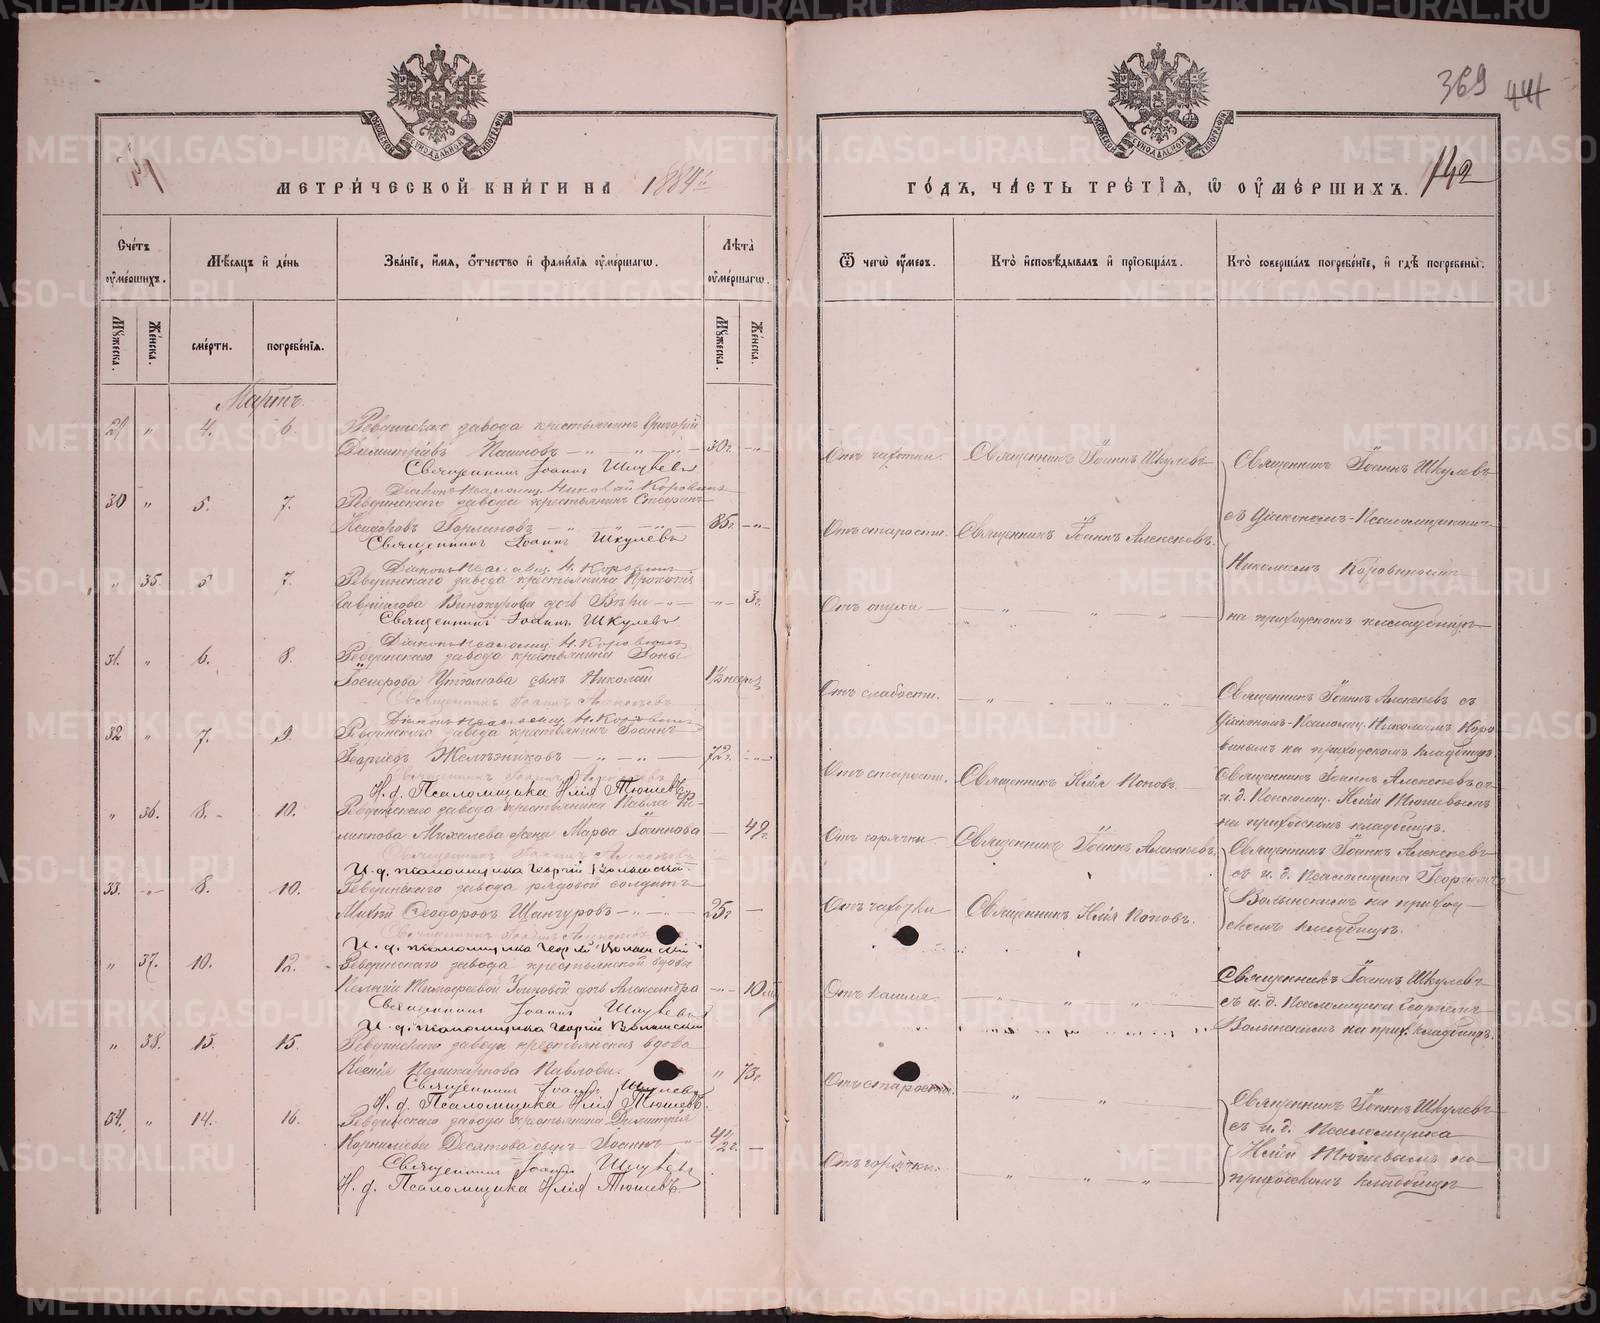 369 441
142
МЕТРИЧЕСКОЙ КНИГИ НА 1884й
ГОДЪ, ЧАСТЬ ТРЕТІЯ, Ѿ ОУМЕРШИХЪ.
Счетъ оумершихъ.
Мѣсяцъ и день
Званіе, имя, отчество и фамилія оумершагѡ.
Лѣта оумершагѡ.
Ѿ чегѡ оумеръ.
Кто исповѣдывалъ и пріобщалъ.
Кто совершалъ погребеніе, и гдѣ погребены.
Мужеска.
Женска.
смерти.
погребенія.
Мужеска.
Женска.
Мартъ.
29 " 4. 6. Ревдинскаго завода крестьянинъ Григорій
Димитріевъ Пашновъ 30 г.
Отъ чахотки. Священникъ Іоаннъ Шкулевъ
Священникъ Іоаннъ Шкулевъ
Священникъ Іоаннъ Шкулевъ
Діаконъ-псаломщ. Николай Коровинъ
30 " 5. 7. Ревдинскаго завода крестьянинъ Стефанъ
Исидоровъ 85 г.
Отъ старости. Священникъ Іоаннъ Алексѣевъ.
съ діакономъ-псаломщикомъ
Священникъ Іоаннъ Шкулевъ
Николаемъ Коровинымъ
Діаконъ-псаломщ. Н. Коровинъ
" 35. 5 7. Ревдинскаго завода крестьянина Прокопія
Гавріилова Винокурова дочь Вѣра 3 г.
на приходскомъ кладбищѣ
Священникъ Іоаннъ Шкулевъ
Діаконъ-псаломщ. Н. Коровинъ
31. " 6. 8. Ревдинскаго завода крестьянина
сынъ Николай
Отъ слабости.
Священникъ Іоаннъ Алексѣевъ съ
Священникъ Іоаннъ Алексѣевъ
діакономъ-псаломщ. Николаемъ Коро-
Діаконъ-псаломщ. Н. Коровинъ
32 " 7. 9. Ревдинскаго завода крестьянинъ Іоаннъ
винымъ на приходскомъ кладбищѣ.
Георгіевъ Желѣзниковъ 72 г.
Отъ старости. Священникъ Илія Поповъ.
Священникъ Іоаннъ Алексѣевъ съ
Священникъ Іоаннъ Алексѣевъ
И. д. Псаломщика Илія Тюшевъ
и. д. псаломщ. Иліей Тюшевымъ
" 36. 8. 10. Ревдинскаго завода крестьянина Павла Фи-
на приходскомъ кладбищѣ.
липпова Михалева жена Марѳа Іоаннова 49 г.
Отъ горячки. Священникъ Іоаннъ Алексѣевъ.
Священникъ Іоаннъ Алексѣевъ
Священникъ Іоаннъ Алексѣевъ
И. д. псаломщика Георгій Волынскій.
съ и. д. псаломщика Георгіемъ
33. 8. 10. Ревдинскаго завода рядовой солдатъ
Волынскимъ на приход-
Ѳеодоровъ Шангуровъ 25 г.
Отъ чахотки Священникъ Илія Поповъ.
скомъ кладбищѣ.
Священникъ Іоаннъ Алексѣевъ
И. д. псаломщика Георгій Волынскій
" 37. 10. 12. Ревдинскаго завода крестьянской вдовы
Священникъ Іоаннъ Шкулевъ
Пелагіи Тимоѳеевой дочь Александра
Отъ кашля.
съ и. д. псаломщика Георгіемъ
Священникъ Іоаннъ Шкулевъ
И. д. псаломщика Георгій Волынскій
Волынскимъ на прих. кладбищѣ.
" 38. 13. 15. Ревдинскаго завода крестьянская вдова
Ксенія Поликарпова Павлова. " 73 г.
Отъ старости.
Священникъ Іоаннъ Шкулевъ
И. д. Псаломщика Илія Тюшевъ.
Священникъ Іоаннъ Шкулевъ
34. " 14. 16. Ревдинскаго завода крестьянина Димитрія
съ и. д. псаломщика
Корниліева Десятова сынъ Іоаннъ
Иліей Тюшевымъ на
Отъ горячки.
Священникъ Іоаннъ Шкулевъ
приходскомъ кладбищѣ
И. д. Псаломщика Илія Тюшевъ.
METRIKI.GASO-URAL.RU